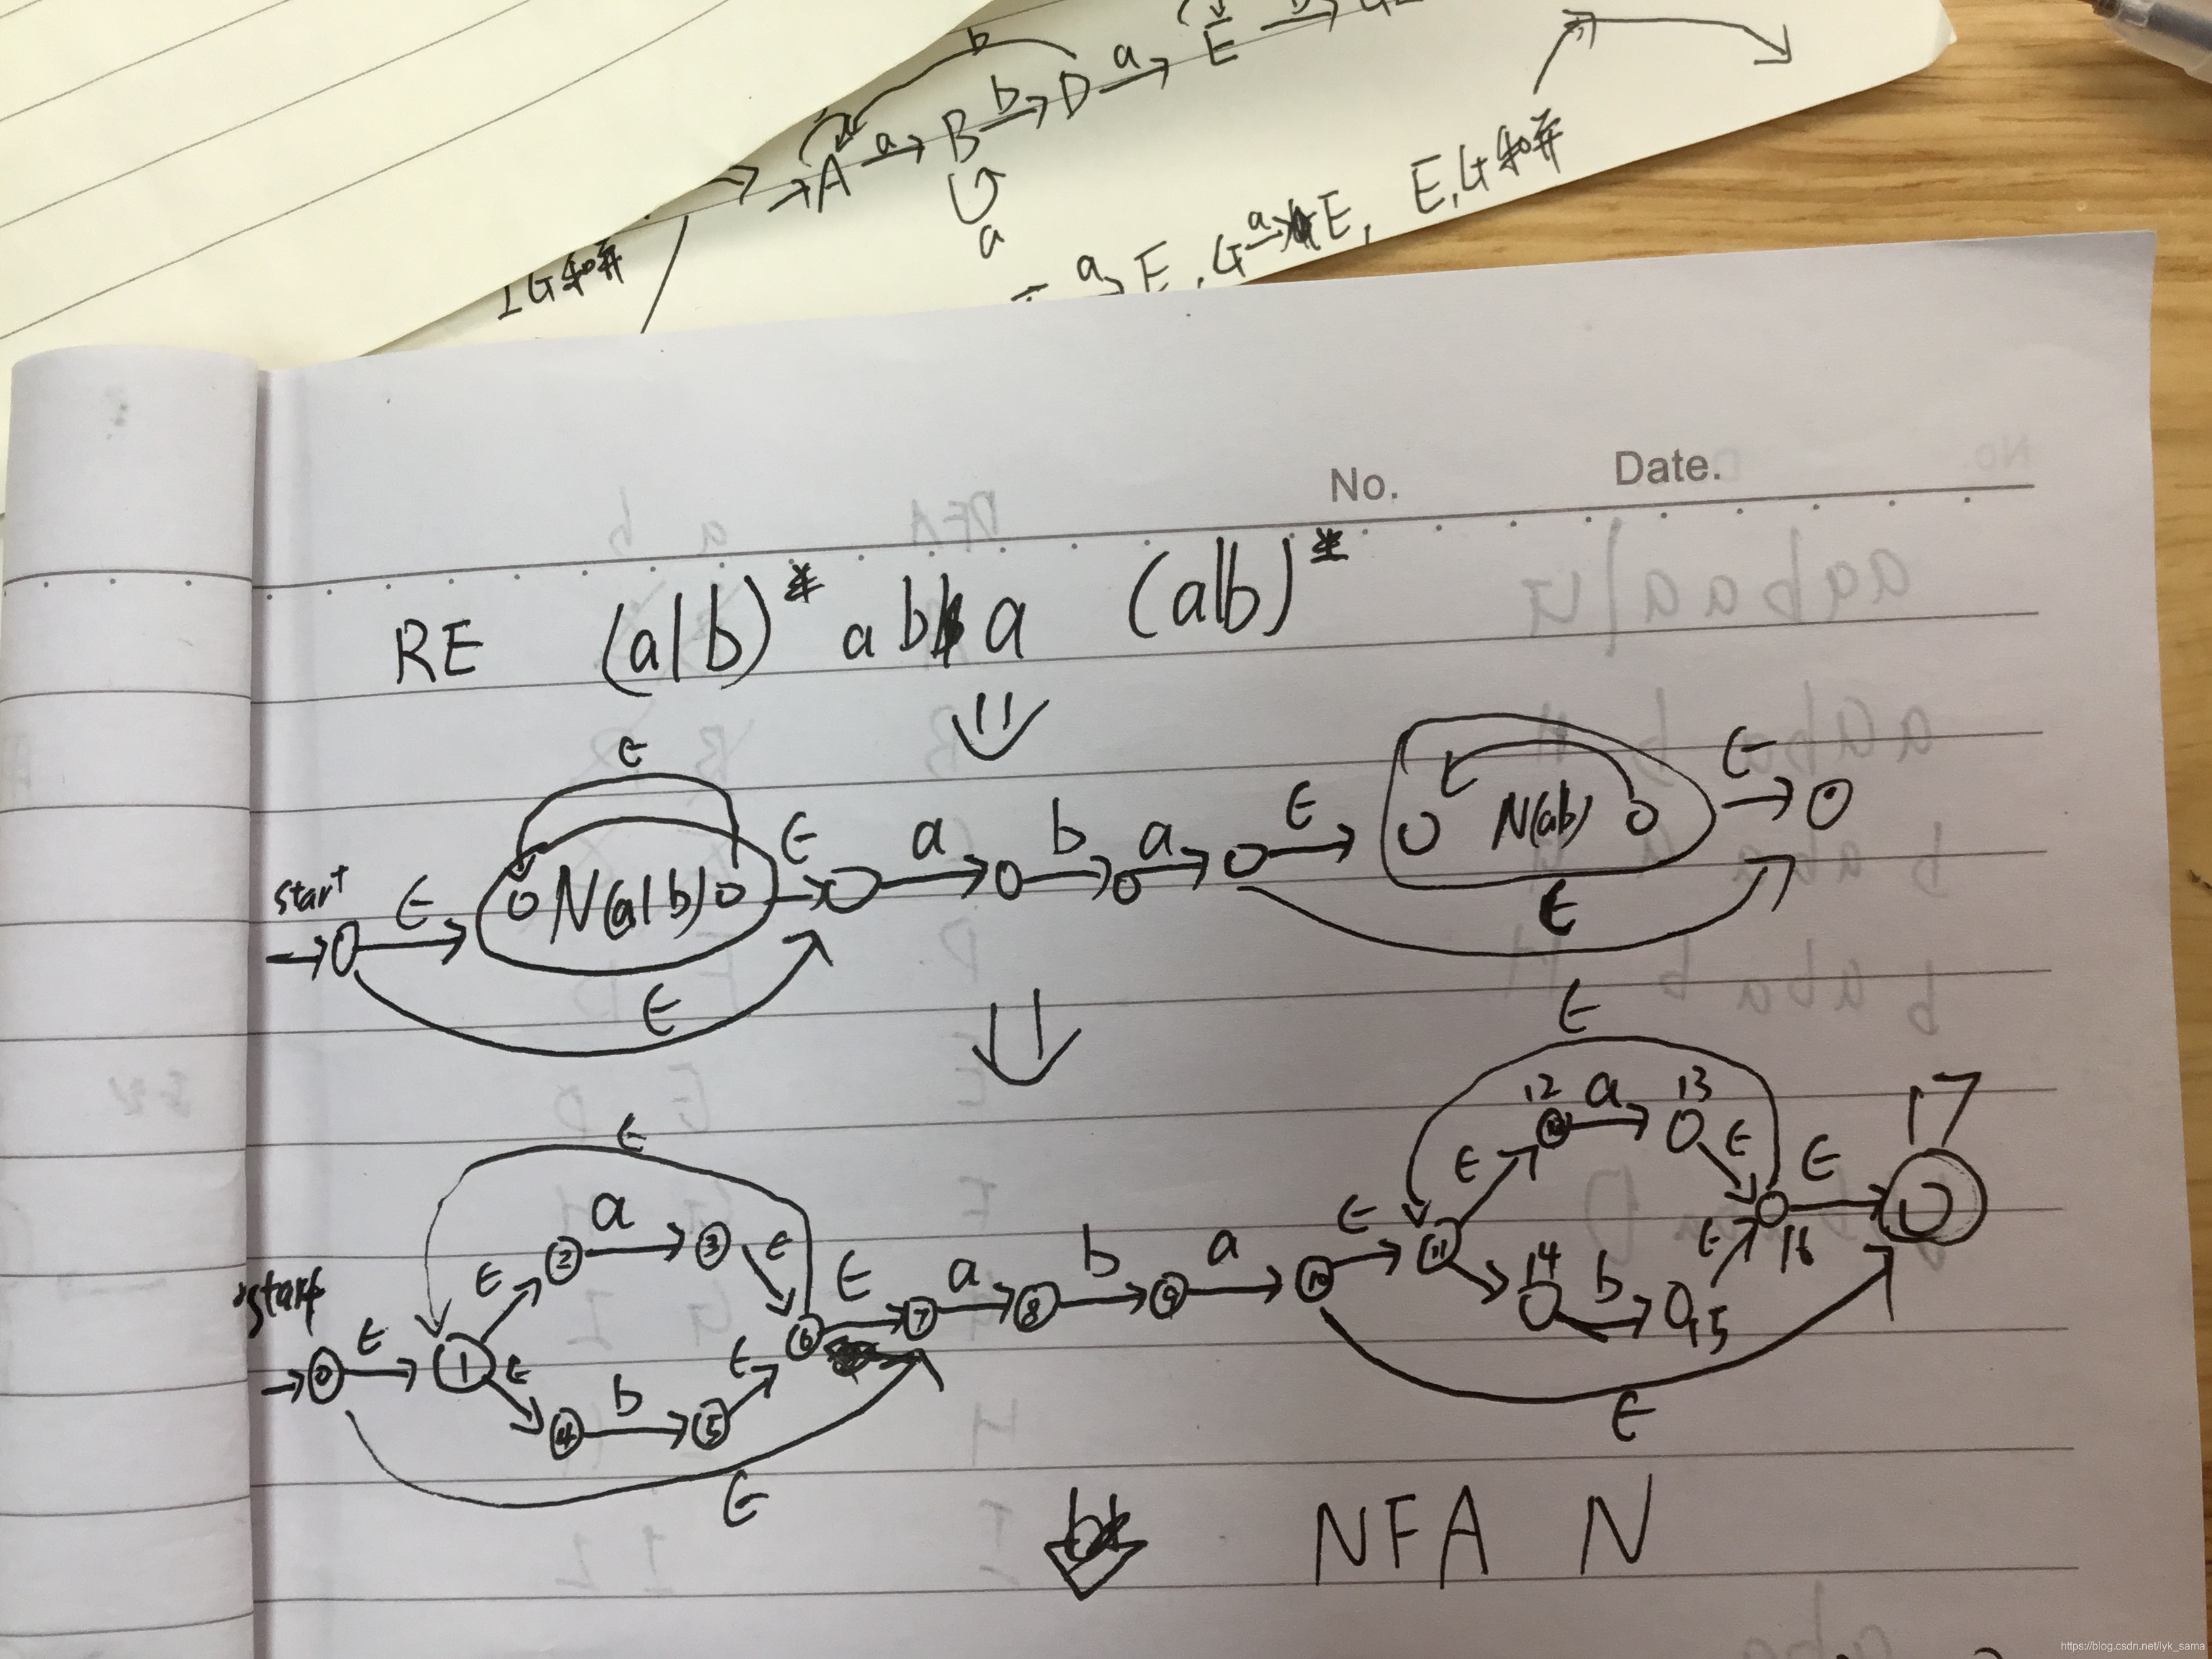 b
A a B b D a E
a
a E, G a E, E,G合并
G合并
No. Date.
RE (a|b)* ab a (a|b)*
ε ε
start ε N(a|b) ε a b a ε N(ab)
ε ε
ε ε
12 a 13 17
② a ③ ε ε ε ε
start ε ε ε ε a b a ε ε 16
⓪ ① ⑥ ⑦ ⑧ ⑨ ⑩ ⑪ 14 b 15
ε ④ b ⑤ ε
ε ε
NFA N
https://blog.csdn.net/lyk_sama